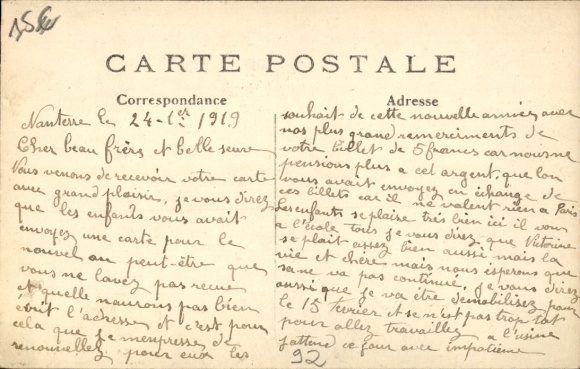 CARTE POSTALE
Correspondance
Nanterre le 24-1er 1919
Cher beau frère et belle seure
Nous venons de recevoir votre carte
avec grand plaisir, je vous direz
que les enfants vous avait
envoyez une carte pour le
nouvel an peut-être que
vous ne lavez pas recue
et quelle naurons pas bien
écrit l'adresse et c'est pour
cela que je m'empresse de
renouvellez pour eux les
Adresse
souhait de cette nouvelle année, avec
nos plus grand remerciments de
votre billet de 5 francs car nous ne
pensions plus a cet argent, que lon
vous avait envoyez en échange de
ces billets car il ne valent rien a Paris
Les enfants se plaise très bien ici il vous
a l'école tous je vous direz que Victorine
se plait assez bien aussi mais la
vie et chère mais nous esperons que
sane va pas continue, je vous direz
aussi que je va être demobilisez pour
le 15 fevrier et se n'est pas trop tot
pour allez travaillez a l'usine
jattend ce jour avec impatience
92